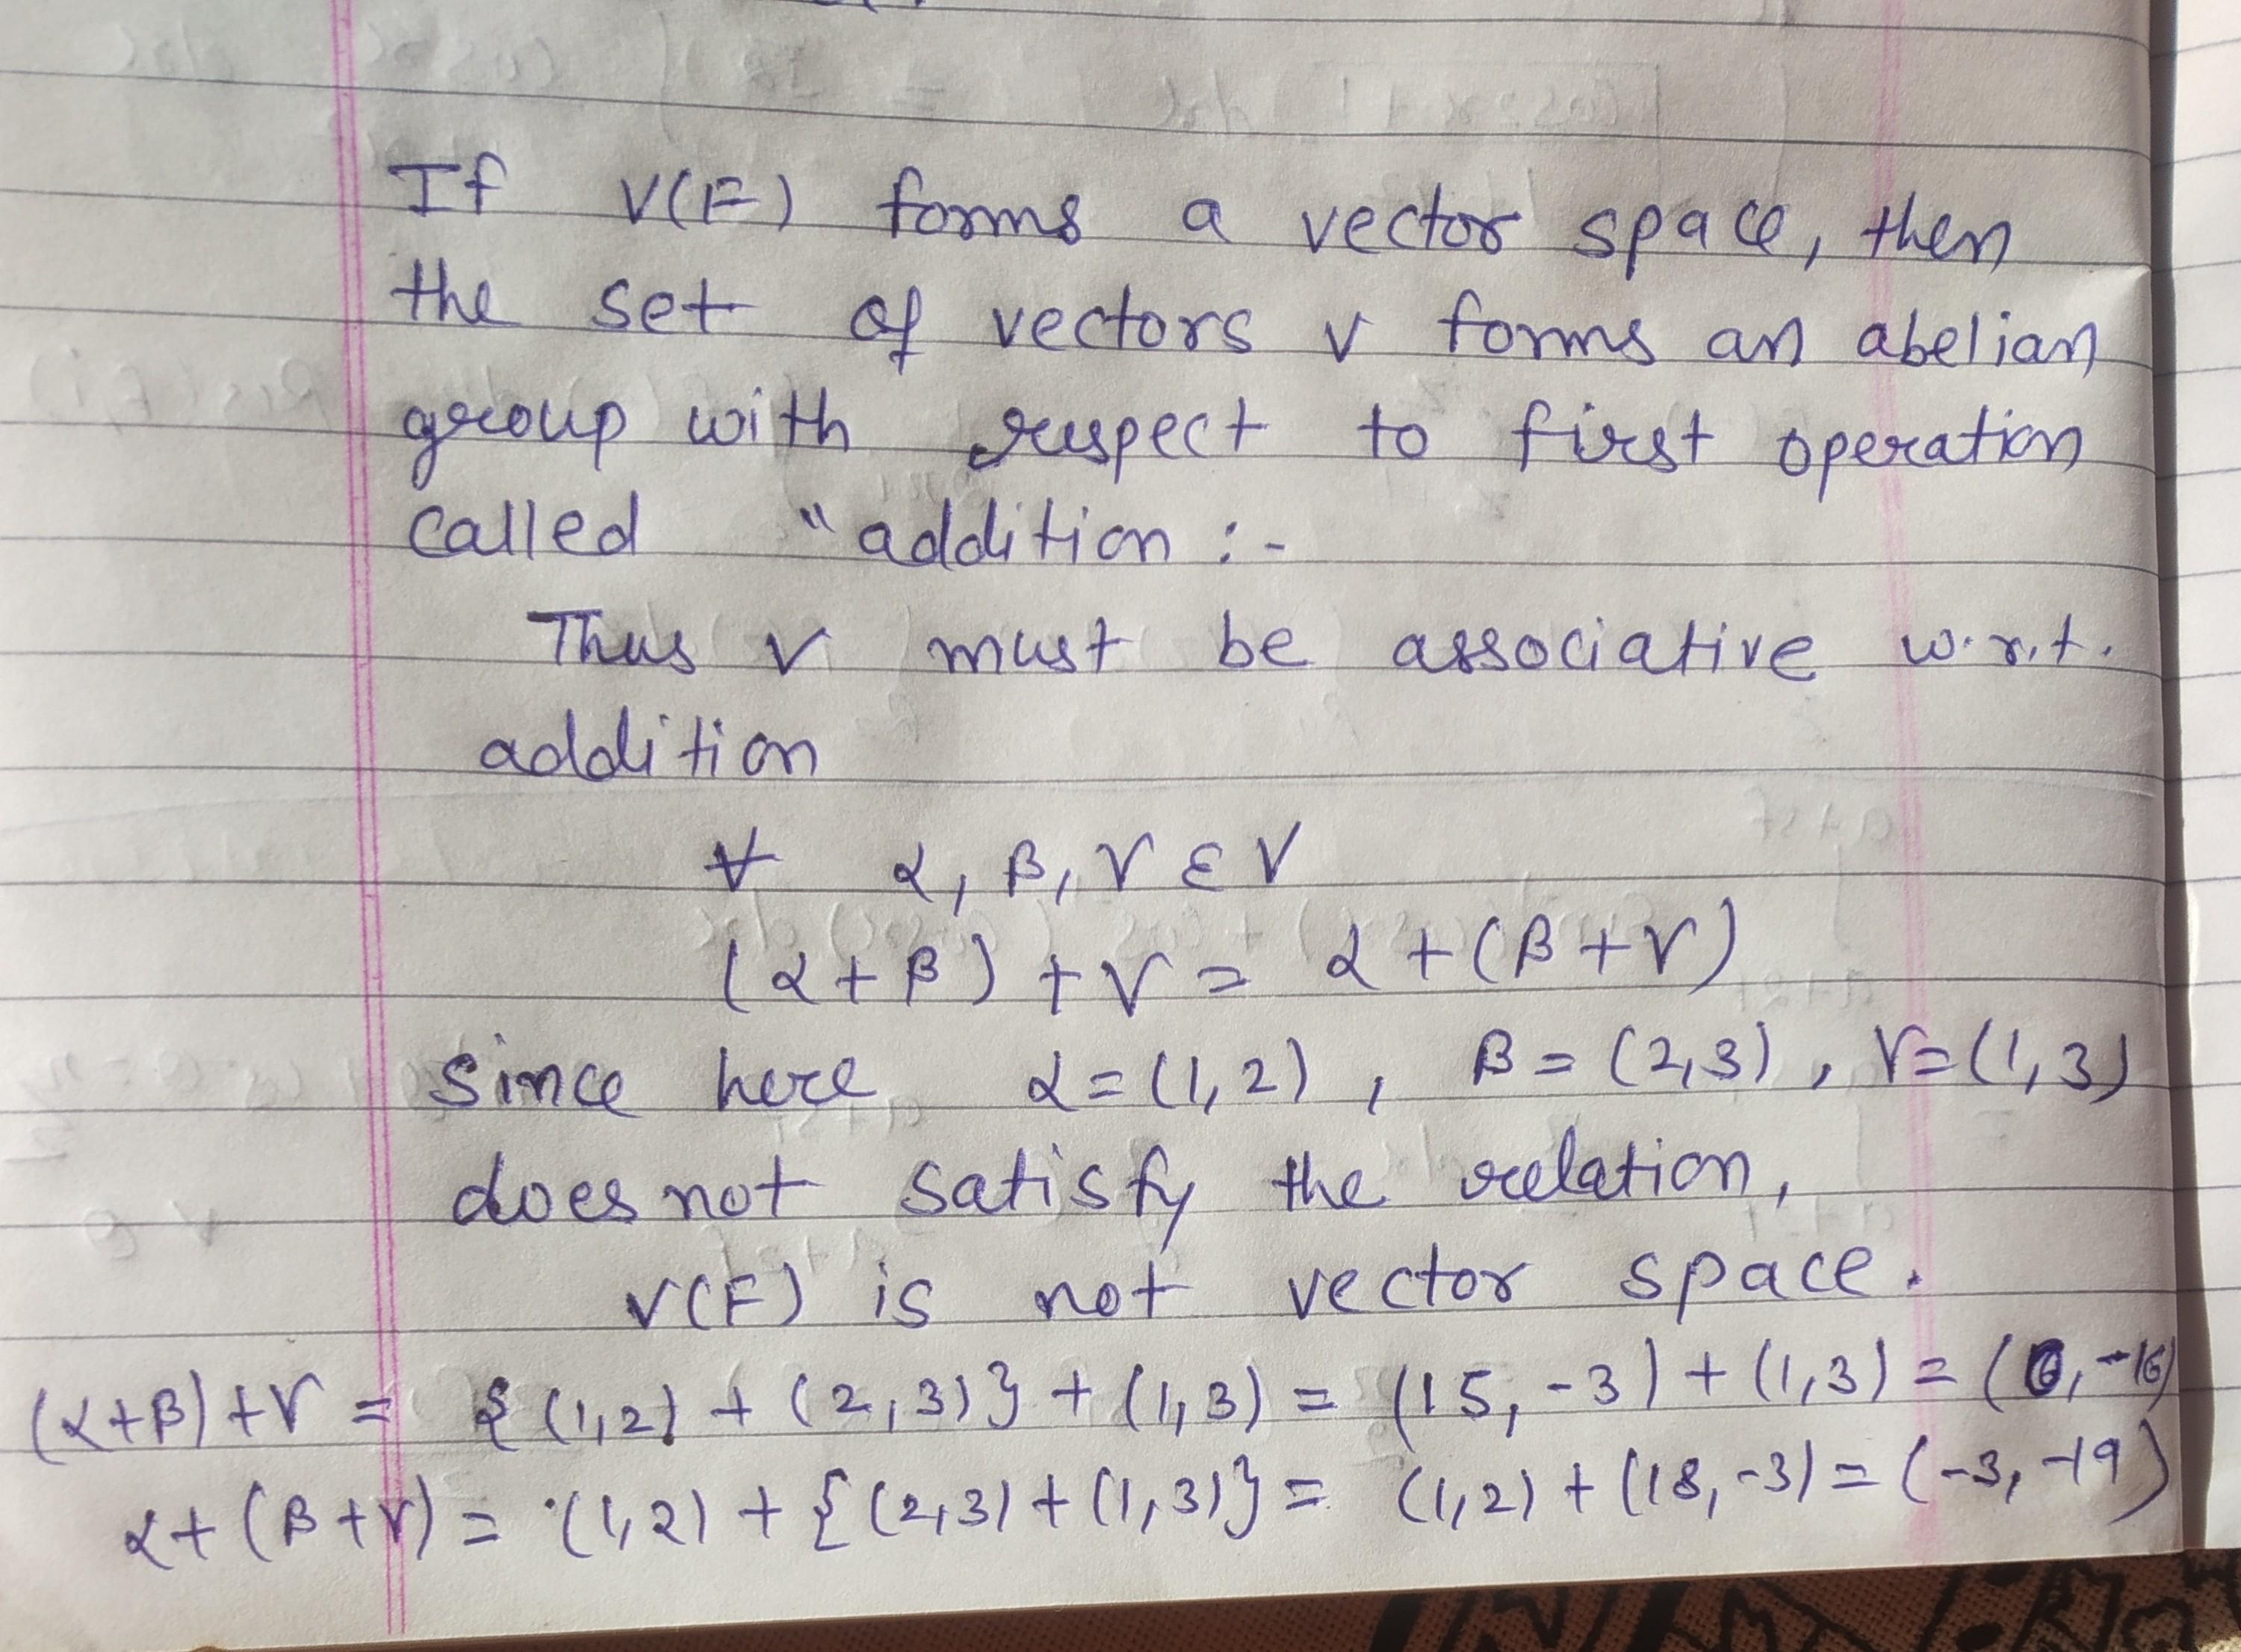 If V(F) forms a vector space, then
the set of vectors V forms an abelian
group with respect to first operation
called "addition :-
Thus V must be associative w.r.t.
addition
∀ α, β, γ ε V
(α+β)+γ = α+(β+γ)
since here α=(1,2), β=(2,3), γ=(1,3)
does not satisfy the relation,
V(F) is not vector space.
(α+β)+γ = {(1,2)+(2,3)}+(1,3) = (15,-3)+(1,3) = (6,-16)
α+(β+γ) = (1,2)+{(2,3)+(1,3)} = (1,2)+(18,-3) = (-3,-19)